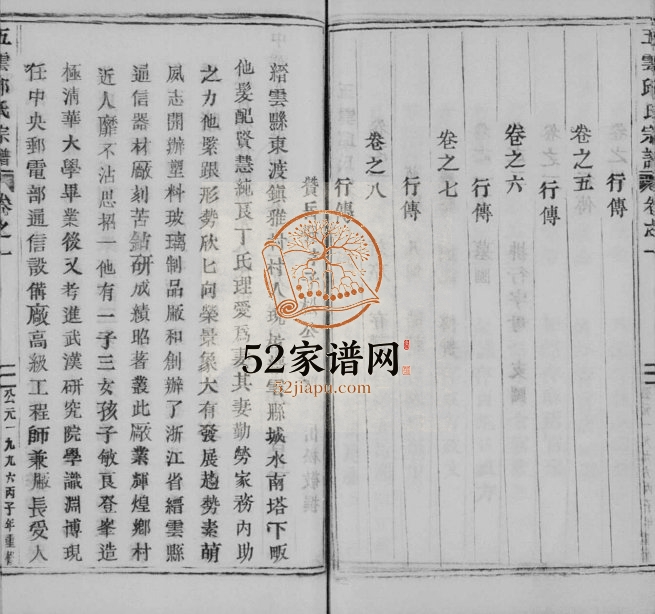 五雲邱氏宗譜
卷之一
行傳
卷之五
行傳
卷之六
行傳
卷之七
行傳
卷之八
行傳
縉雲縣東渡鎮雅村村人現
雲縣城水南塔下畈
他髮配賢慧純良丁氏理愛爲妻其妻勤勞家務內助
之力他緊跟形勢欣匕向榮景象大有發展趨勢素萌
風志開辦塑料玻璃制品廠和創辦了浙江省縉雲縣
通信器材廠刻苦鉆研成績昭著叢此廠業輝煌鄉村
近人靡不沾恩招一他有一子三女孩子敏良登峯造
極清華大學畢業後又考進武漢研究院學識淵博現
任中央郵電部通信設備廠高級工程師兼廠長受人
五雲邱氏宗譜
卷之一
公元一九九六丙子年重修
52家谱网
52jiapu.com